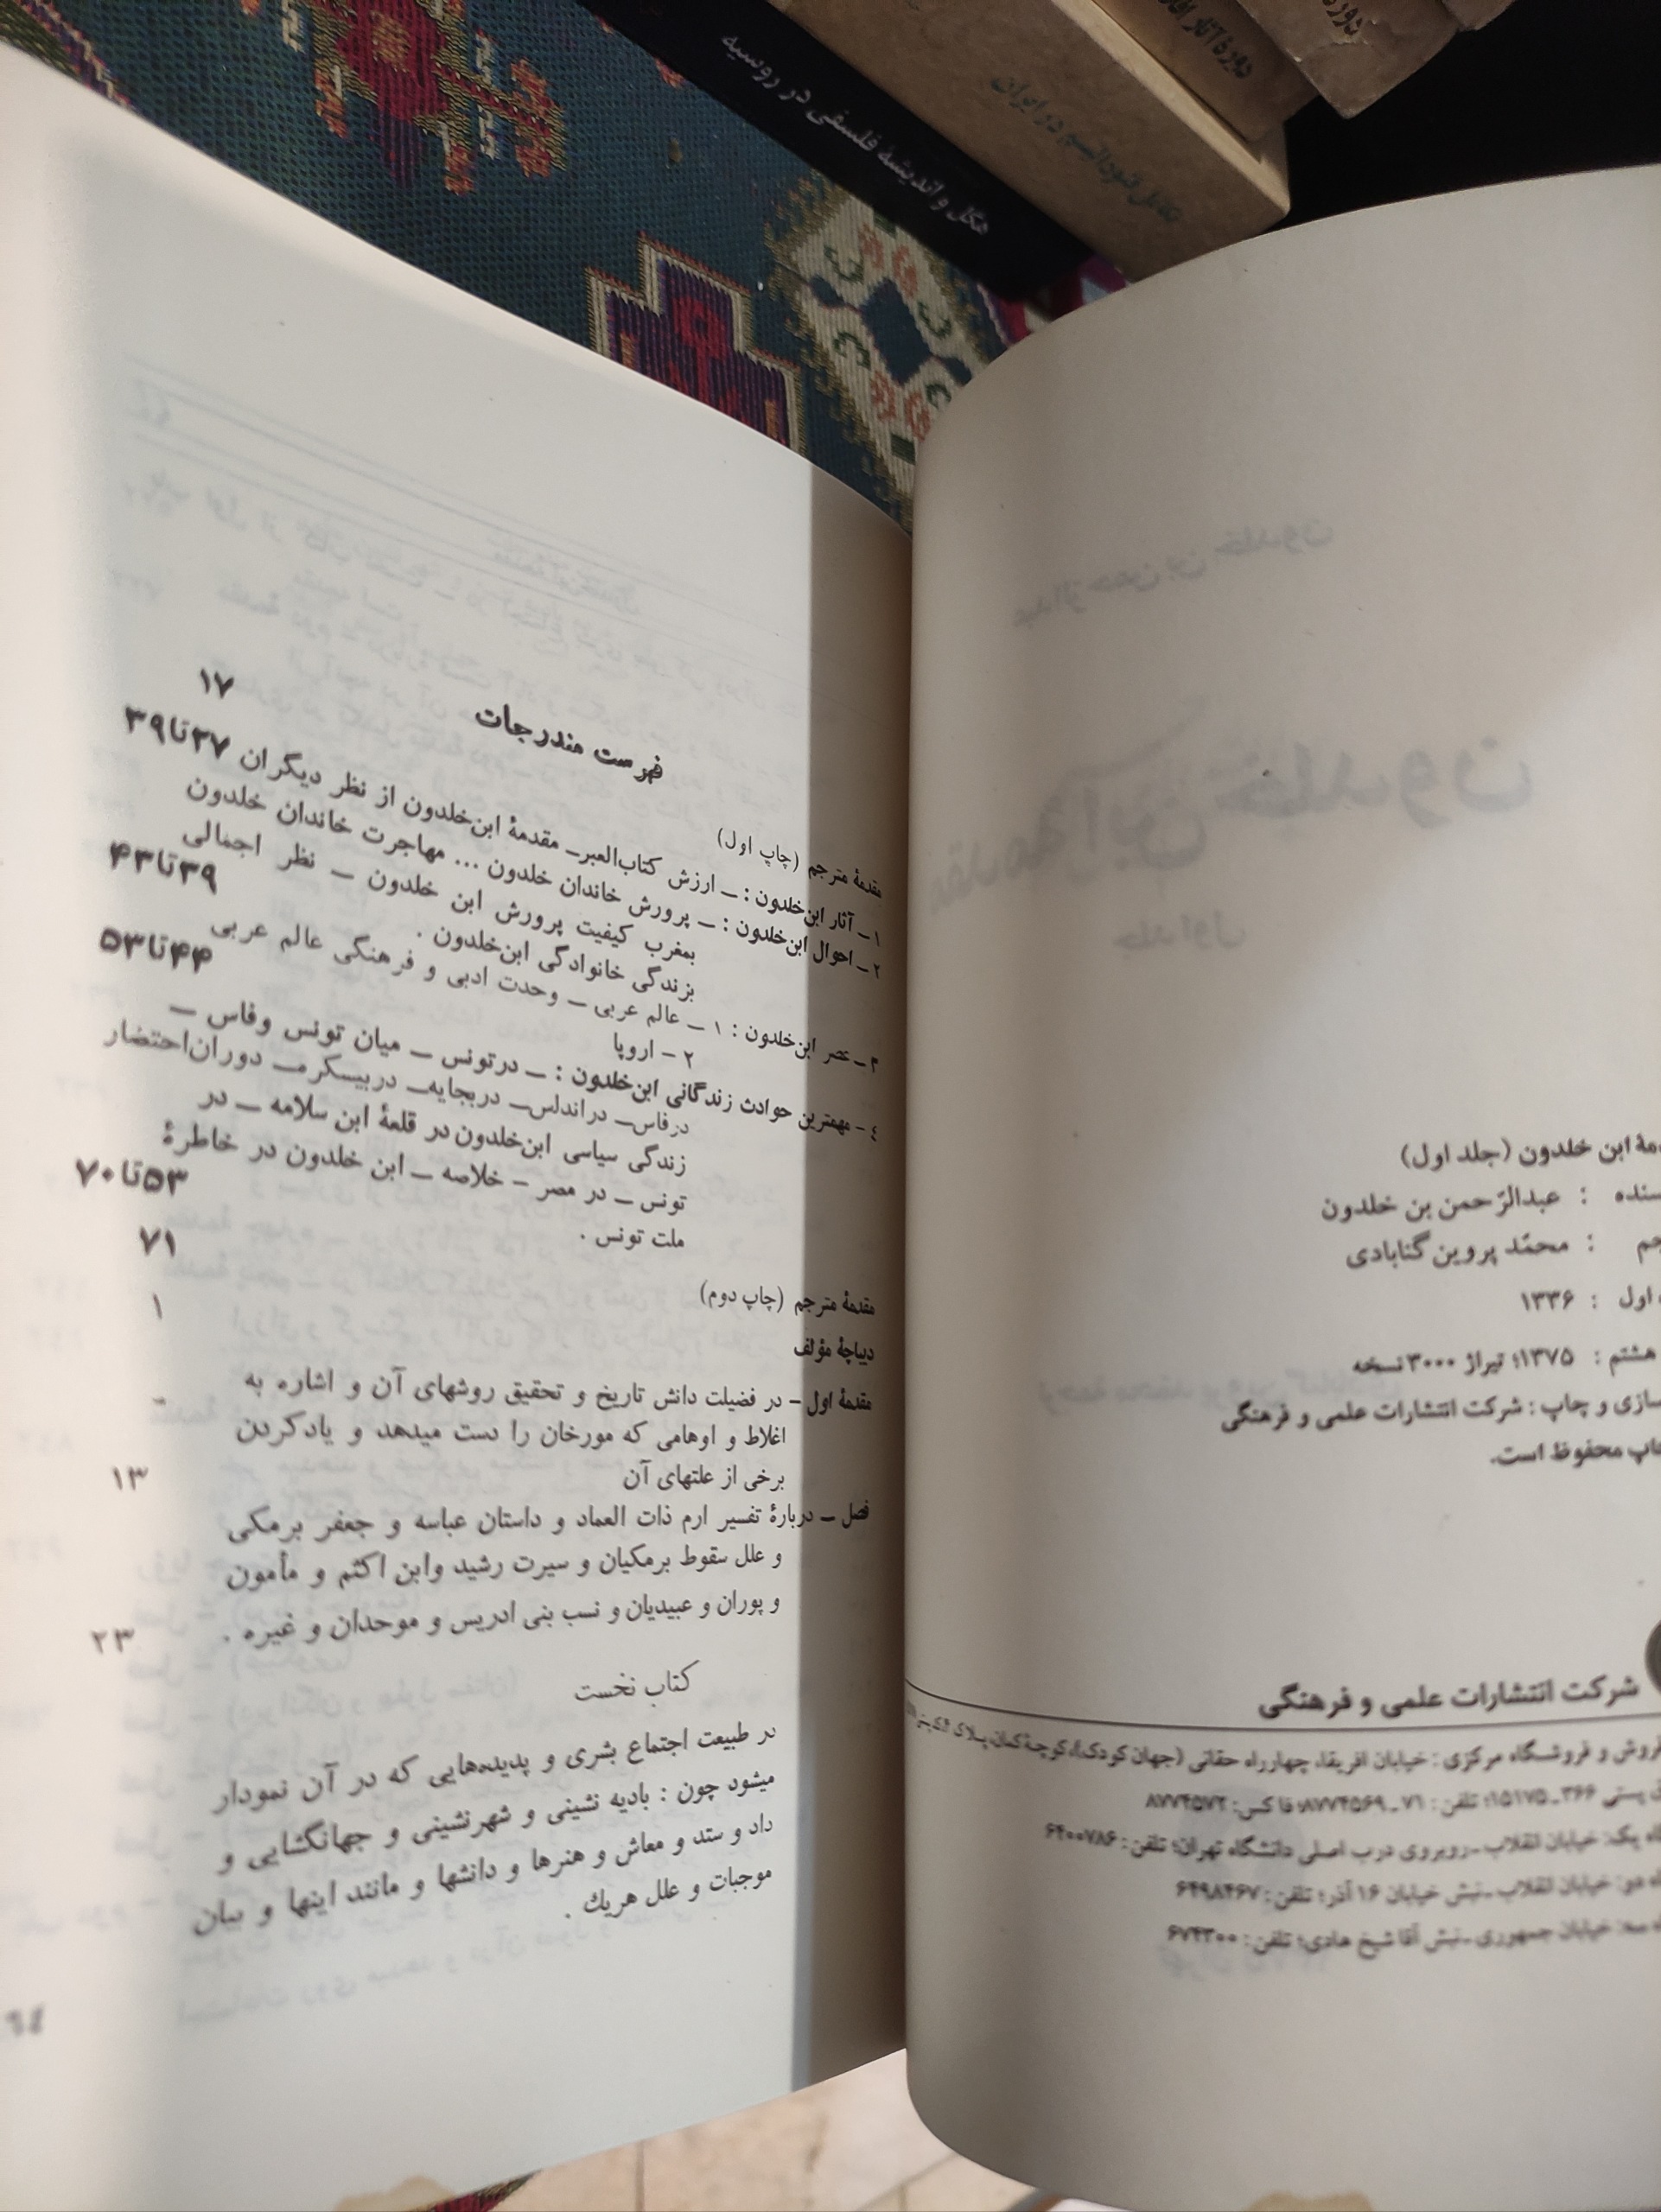 شکل و اندیشهٔ فلسفی در روسیه
تکامل فئودالیسم در ایران
دورهٔ آثار
ابن خلدون (جلد اول)
: عبدالرّحمن بن خلدون
: محمّد پروین گنابادی
اول : ۱۳۳۶
هشتم : ۱۳۷۵؛ تیراژ ۳۰۰۰ نسخه
و چاپ : شرکت انتشارات علمی و فرهنگی
محفوظ است.
شرکت انتشارات علمی و فرهنگی
و فروشگاه مرکزی : خیابان افریقا، چهارراه حقانی (جهان کودک)، کوچهٔ کمان، پلاک
پستی ۳۶۶ـ۱۵۱۷۵؛ تلفن : ۷۱ـ۸۷۷۴۵۶۹؛ فاکس: ۸۷۷۴۵۷۲
یک: خیابان انقلاب ـ روبروی درب اصلی دانشگاه تهران؛ تلفن : ۶۴۰۰۷۸۶
دو: خیابان انقلاب ـ نبش خیابان ۱۶ آذر؛ تلفن : ۶۴۹۸۴۶۷
سه: خیابان جمهوری ـ نبش آقا شیخ هادی؛ تلفن : ۶۷۴۳۰۰
فهرست مندرجات
مقدمهٔ مترجم (چاپ اول) ۱۷
۱ ـ آثار ابن‌خلدون : ـ ارزش کتاب‌العبر ـ مقدمهٔ ابن‌خلدون از نظر دیگران ۳۷تا۳۹
۲ ـ احوال ابن‌خلدون : ـ پرورش خاندان خلدون ... مهاجرت خاندان خلدون
بمغرب کیفیت پرورش ابن خلدون ـ نظر اجمالی
بزندگی خانوادگی ابن‌خلدون . ۳۹تا۴۳
۳ ـ عصر ابن‌خلدون : ۱ ـ عالم عربی ـ وحدت ادبی و فرهنگی عالم عربی
۲ - اروپا ۴۴تا۵۳
٤ - مهمترین حوادث زندگانی ابن‌خلدون : ـ درتونس ـ میان تونس وفاس ـ
درفاس ـ دراندلس ـ دربجایه ـ دربیسکره ـ دوران‌احتضار
زندگی سیاسی ابن‌خلدون در قلعهٔ ابن سلامه ـ در
تونس ـ در مصر - خلاصه ـ ابن خلدون در خاطرهٔ
ملت تونس . ۵۳تا۷۰
مقدمهٔ مترجم (چاپ دوم) ۷۱
دیباچهٔ مؤلف ۱
مقدمهٔ اول - در فضیلت دانش تاریخ و تحقیق روشهای آن و اشاره به
اغلاط و اوهامی که مورخان را دست میدهد و یادکردن
برخی از علتهای آن ۱۳
فصل ـ دربارهٔ تفسیر ارم ذات العماد و داستان عباسه و جعفر برمکی
و علل سقوط برمکیان و سیرت رشید وابن اکثم و مأمون
و پوران و عبیدیان و نسب بنی ادریس و موحدان و غیره . ۲۳
کتاب نخست
در طبیعت اجتماع بشری و پدیده‌هایی که در آن نمودار
میشود چون : بادیه نشینی و شهرنشینی و جهانگشایی و
داد و ستد و معاش و هنرها و دانشها و مانند اینها و بیان
موجبات و علل هریك .